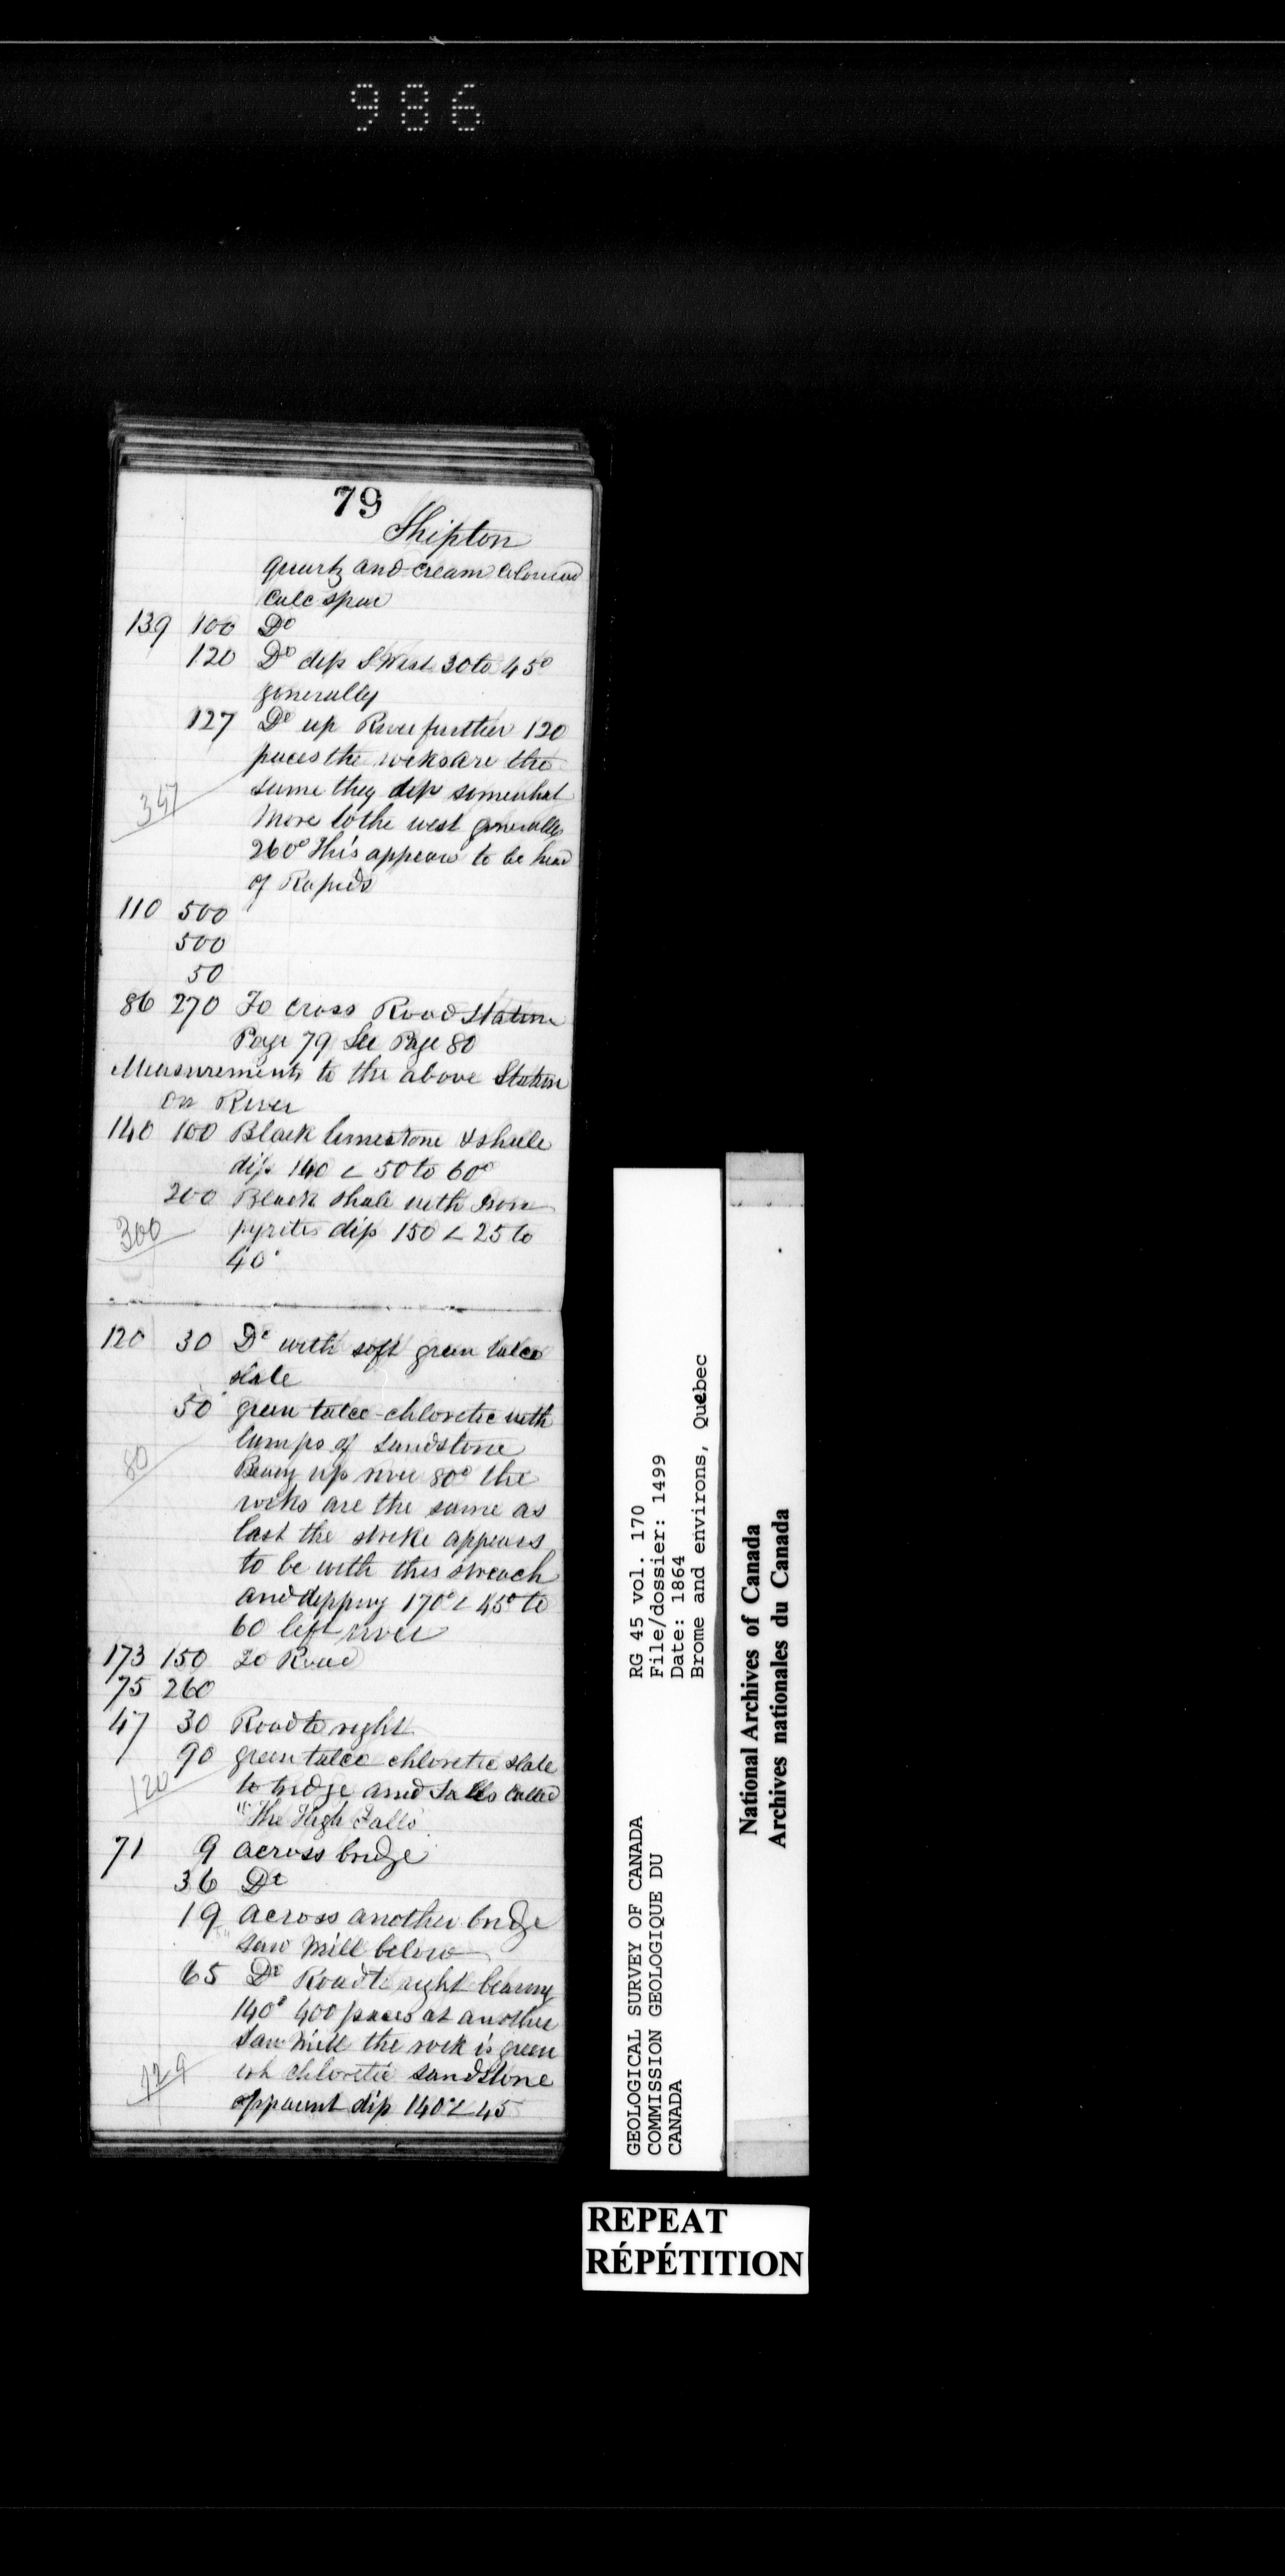 986
79
Shipton
quartz and cream coloured
calc spar
139 100 Do
120 Do dip S West 30 to 45°
generally
127 Do up River further 120
paces the rocks are the
same they dip somewhat
347
more to the west generally
260° This appears to be head
of Rapids
110 500
500
50
86 270 To cross Road Station
Page 79 See Page 80
Measurements to the above Station
on River
140 100 Black limestone & shale
dip 140 ∠ 50 to 60°
200 Black shale with Iron
300 pyrites dip 150 ∠ 25 to
40°
120 30 Do with soft green talco
slate
50 green talco-chloretic with
lumps of sandstone
80 Bearing up river 80° the
rocks are the same as
last the strike appears
to be with this streach
and dipping 170° ∠ 45° to
60 left river
173 150 To Road
75 260
47 30 Road to right
90 green talco chloretic slate
120 to bridge and falls called
"The High Falls"
71 9 across bridge
36 Do
19 across another bridge
saw mill below
65 Do Road to right bearing
140° 400 paces at another
saw mill the rock is green
129 ish chloretic sandstone
appaunt dip 140° ∠ 45
GEOLOGICAL SURVEY OF CANADA
COMMISSION GEOLOGIQUE DU
CANADA
RG 45 vol. 170
File/dossier: 1499
Date: 1864
Brome and environs, Quebec
National Archives of Canada
Archives nationales du Canada
REPEAT
RÉPÉTITION